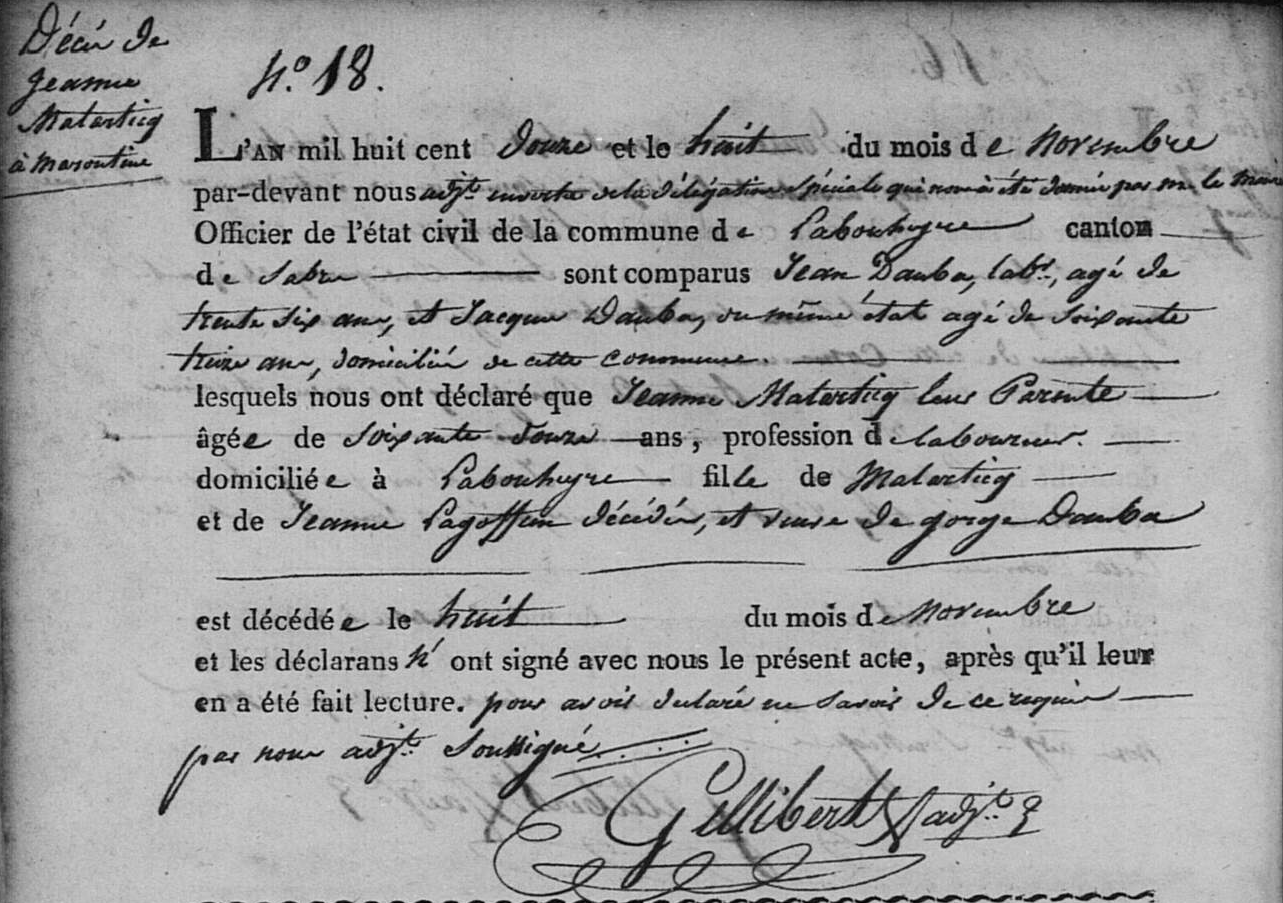 Décès de
Jeanne
Matarticq
à Maroutine
N.º 18.
L'AN mil huit cent douze et le huit du mois de Novembre
par-devant nous adjt. en vertu de la délégation spéciale qui nous à été donnée par mr. le maire
Officier de l'état civil de la commune de Labouheyre canton
de Sabres sont comparus Jean Dauba, labr., agé de
trente six ans, et Jacques Dauba, du même état agé de soixante
treize ans, domiciliés de cette commune.
lesquels nous ont déclaré que Jeanne Matarticq leur Parente
âgée de soixante douze ans, profession de laboureur.
domiciliée à Labouheyre fille de Matarticq
et de Jeanne Lagoffun décédés, et veuve de gorge Dauba
est décédée le huit du mois de Novembre
et les déclarans n' ont signé avec nous le présent acte, après qu'il leur
en a été fait lecture. pour avoir déclaré ne savoir de ce requis
par nous adjt. soussigné
Gellibert adjt.